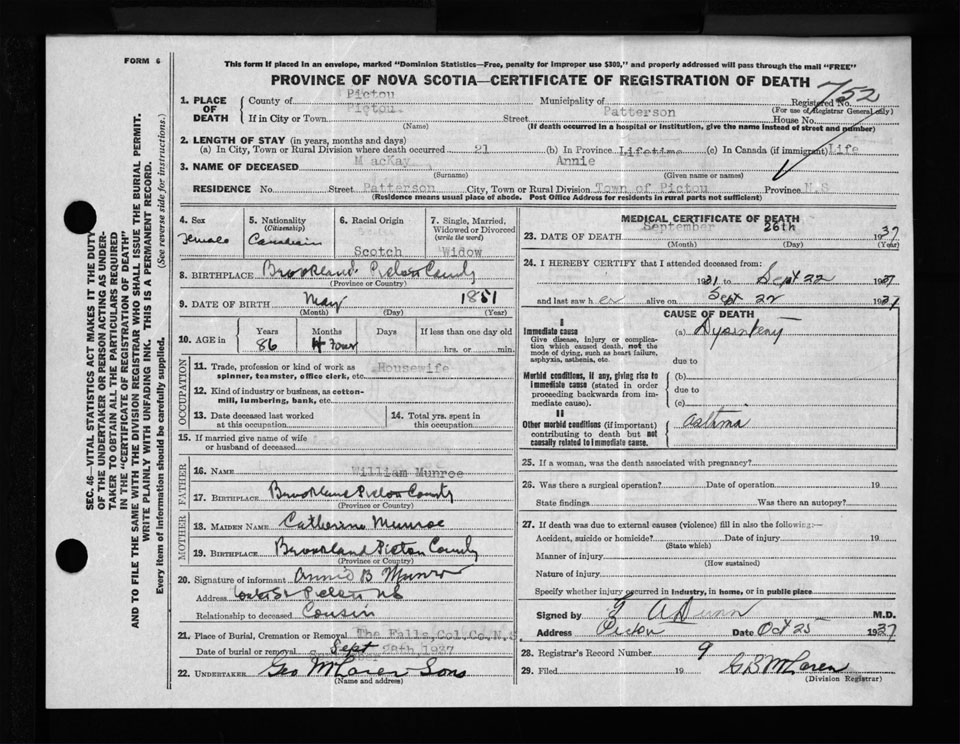 FORM 6
This form if placed in an envelope, marked "Dominion Statistics—Free, penalty for improper use $300," and properly addressed will pass through the mail "FREE"
PROVINCE OF NOVA SCOTIA—CERTIFICATE OF REGISTRATION OF DEATH
752
SEC. 46—VITAL STATISTICS ACT MAKES IT THE DUTY
OF THE UNDERTAKER OR PERSON ACTING AS UNDER-
TAKER TO OBTAIN ALL THE PARTICULARS REQUIRED
IN THE "CERTIFICATE OF REGISTRATION OF DEATH"
AND TO FILE THE SAME WITH THE DIVISION REGISTRAR WHO SHALL ISSUE THE BURIAL PERMIT.
WRITE PLAINLY WITH UNFADING INK. THIS IS A PERMANENT RECORD.
Every item of Information should be carefully supplied. (See reverse side for instructions.)
1. PLACE OF DEATH
County of Pictou Municipality of Registered No.
(For use of Registrar General only)
If in City or Town Pictou. Street Patterson House No.
(Name) (If death occurred in a hospital or institution, give the name instead of street and number)
2. LENGTH OF STAY (in years, months and days)
(a) In City, Town or Rural Division where death occurred 21 (b) In Province Lifetime (c) In Canada (if immigrant) Life
3. NAME OF DECEASED MacKay, Annie
(Surname) (Given name or names)
RESIDENCE No. Street Patterson City, Town or Rural Division Town of Pictou Province N.S
(Residence means usual place of abode. Post Office Address for residents in rural parts not sufficient)
4. Sex Female
5. Nationality (Citizenship) Canadian
6. Racial Origin Scotch
7. Single, Married, Widowed or Divorced (write the word) Widow
8. BIRTHPLACE Brookland Pictou County
(Province or Country)
9. DATE OF BIRTH May 1851
(Month) (Day) (Year)
10. AGE in Years Months Days If less than one day old
86 4 Four hrs. or min.
OCCUPATION
11. Trade, profession or kind of work as spinner, teamster, office clerk, etc. Housewife
12. Kind of industry or business, as cotton-mill, lumbering, bank, etc.
13. Date deceased last worked at this occupation
14. Total yrs. spent in this occupation
15. If married give name of wife or husband of deceased
FATHER
16. NAME William Munroe
17. BIRTHPLACE Brookland Pictou County
(Province or Country)
MOTHER
18. MAIDEN NAME Catherine Munroe
19. BIRTHPLACE Brookland Pictou County
(Province or Country)
20. Signature of informant Annie B Munro
Address Pictou NS
Relationship to deceased Cousin
21. Place of Burial, Cremation or Removal The Falls, Col. Co. N.S
Date of burial or removal Sept 28th, 1937
22. UNDERTAKER Geo McLaren Sons
(Name and address)
MEDICAL CERTIFICATE OF DEATH
23. DATE OF DEATH September 26th 1937
(Month) (Day) (Year)
24. I HEREBY CERTIFY that I attended deceased from:
1931 to Sept 22 1937
and last saw her alive on Sept 22 1937
CAUSE OF DEATH
I
Immediate cause (a) Dysentery
Give disease, injury or complication which caused death, not the mode of dying, such as heart failure, asphyxia, asthenia, etc.
due to
Morbid conditions, if any, giving rise to immediate cause (stated in order proceeding backwards from immediate cause). (b)
due to
(c)
II
Other morbid conditions (if important) contributing to death but not causally related to immediate cause. Asthma
25. If a woman, was the death associated with pregnancy?
26. Was there a surgical operation? Date of operation 19
State findings Was there an autopsy?
27. If death was due to external causes (violence) fill in also the following:—
Accident, suicide or homicide? Date of injury 19
(State which)
Manner of injury
(How sustained)
Nature of injury
Specify whether injury occurred in industry, in home, or in public place
Signed by A Dunn M.D.
Address Pictou Date Oct 25 1937
28. Registrar's Record Number 9
29. Filed 19 G B McLaren
(Division Registrar)